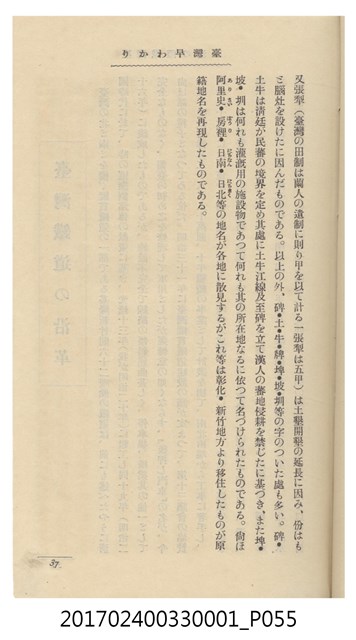 臺灣早わかり
又張犁（臺灣の田制は蘭人の遺制に則り甲を以て計る一張犁は五甲）は土墾開墾の延長に因み、份はも
と腦灶を設けたに因んだものである。以上の外、碑•土•牛•牌•埤•坡•圳等の字のついた處も多い。碑•
土牛は淸廷が民蕃の境界を定め其處に土牛江線及至碑を立て漢人の蕃地侵耕を禁じたに基づき、また埤•
坡•圳は何れも灌漑用の施設物であつて何れも其の所在地なるに依つて名づけられたものである。尙ほ
阿里史•房裡•日南•日北等の地名が各地に散見するがこれ等は彰化•新竹地方より移住したものが原
籍地名を再現したものである。
37
201702400330001_P055